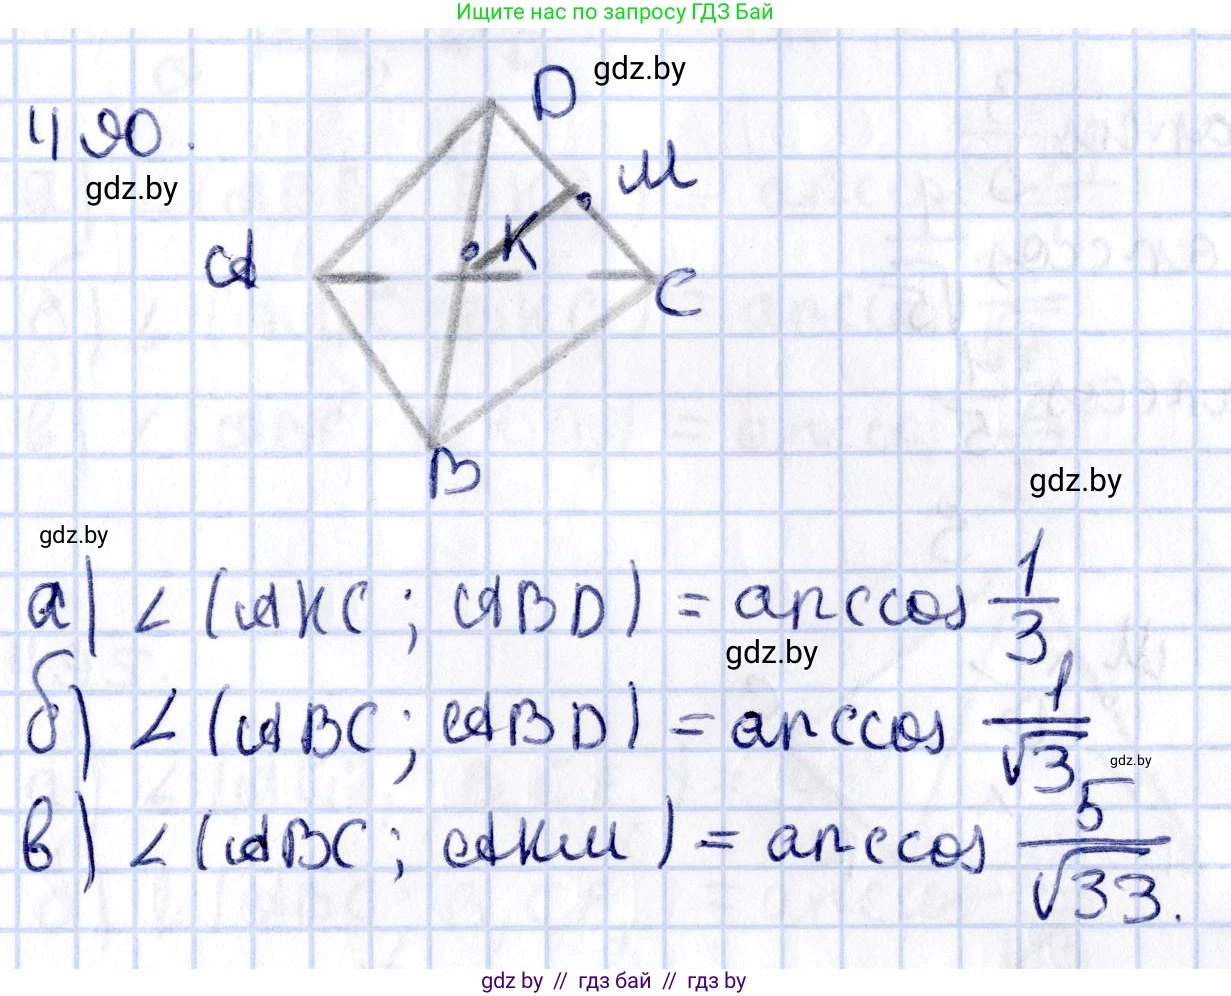 Ищите нас по запросу ГДЗ Бай
490.
gdz.by
gdz.by
D
M
K
A
C
B
gdz.by
gdz.by
а) ∠(AKC; ABD) = arccos 1/3
gdz.by
б) ∠(ABC; ABD) = arccos 1/√3
gdz.by
в) ∠(ABC; AKM) = arccos 5/√33.
gdz.by // гдз бай // gdz.by